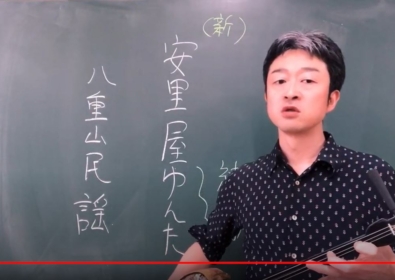 (新)
安里屋ゆんた
八重山民謡